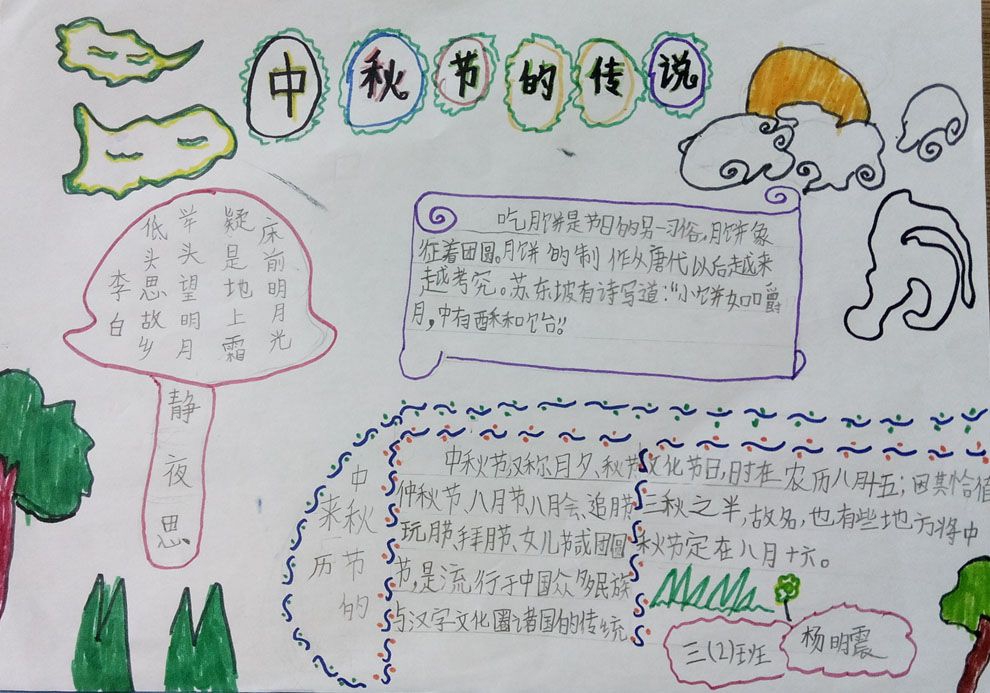 中秋节的传说
床前明月光
疑是地上霜
举头望明月
低头思故乡
李白
静夜思
吃月饼是节日的另一习俗,月饼象
征着团圆。月饼的制作从唐代以后越来
越考究。苏东坡有诗写道:“小饼如口嚼
月,中有酥和饴。”
中秋节
来历的
中秋节又称月夕、秋节
仲秋节、八月节、八月会、追月节
玩月节、拜月节、女儿节或团圆
节,是流行于中国众多民族
与汉字文化圈诸国的传统
文化节日,时在农历八月十五;因其恰值
三秋之半,故名,也有些地方将中
秋节定在八月十六。
三(2)班
杨明震